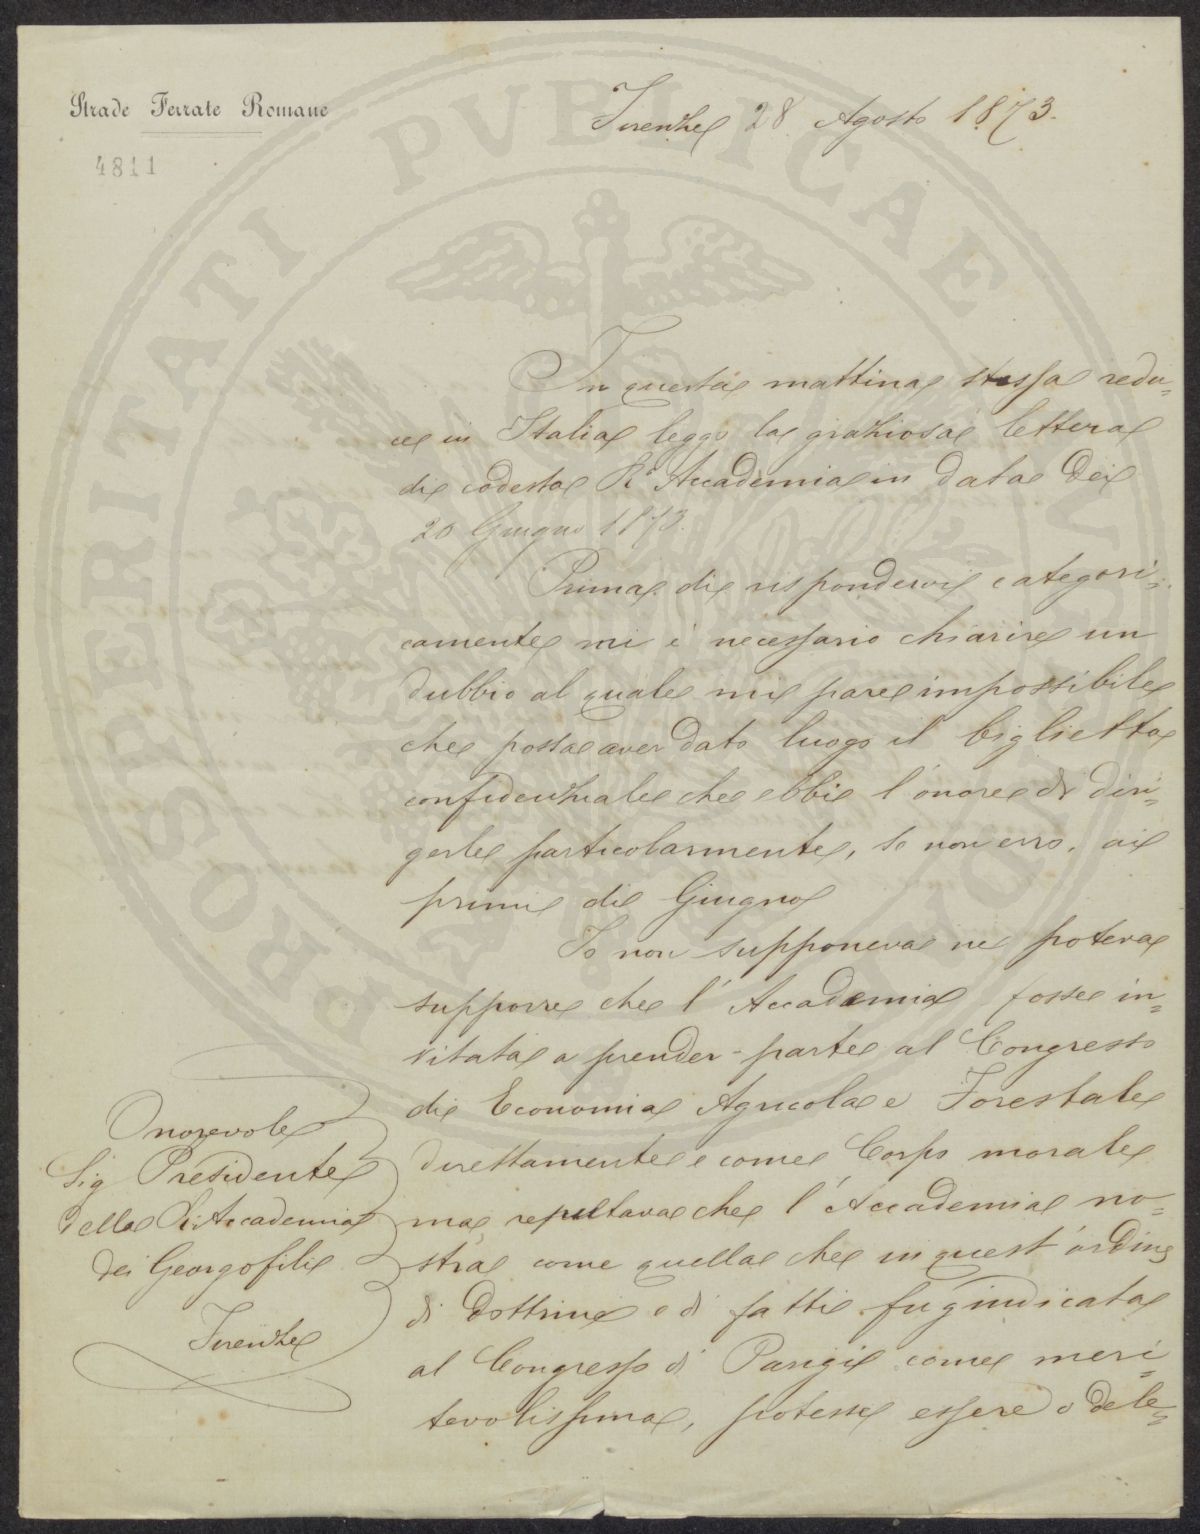 Strade Ferrate Romane
4811
Firenze 28 Agosto 1873.
In questa mattina stessa redu=
ce in Italia leggo la graziosa lettera
di codesta R.ª Accademia in data dei
20 Giugno 1873.
Prima di rispondervi categori=
camente mi è necessario chiarire un
dubbio al quale mi pare impossibile
che possa aver dato luogo il biglietto
confidenziale che ebbi l'onore di diri=
gerle particolarmente, se non erro, ai
primi di Giugno
Io non supponeva ne poteva
supporre che l'Accademia fosse in=
vitata a prender parte al Congresso
di Economia Agricola e Forestale
direttamente e come Corpo morale
ma reputava che l'Accademia no=
stra come quella che in quest'ordine
di dottrine e di fatti fu giudicata
al Congresso di Parigi come meri=
tevolissima, potesse essere o dele=
Onorevole
Sig Presidente
della R. Accademia
dei Georgofili
Firenze
PROSPERITATI PVBLICAE